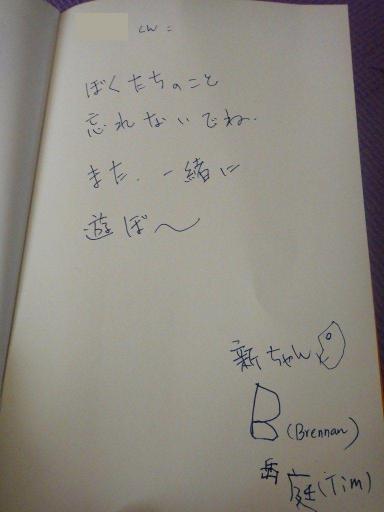 くん：
ぼくたちのこと
忘れないでね.
また.一緒に
遊ぼ〜
新ちゃん
B (Brennan)
岳庭(Tim)